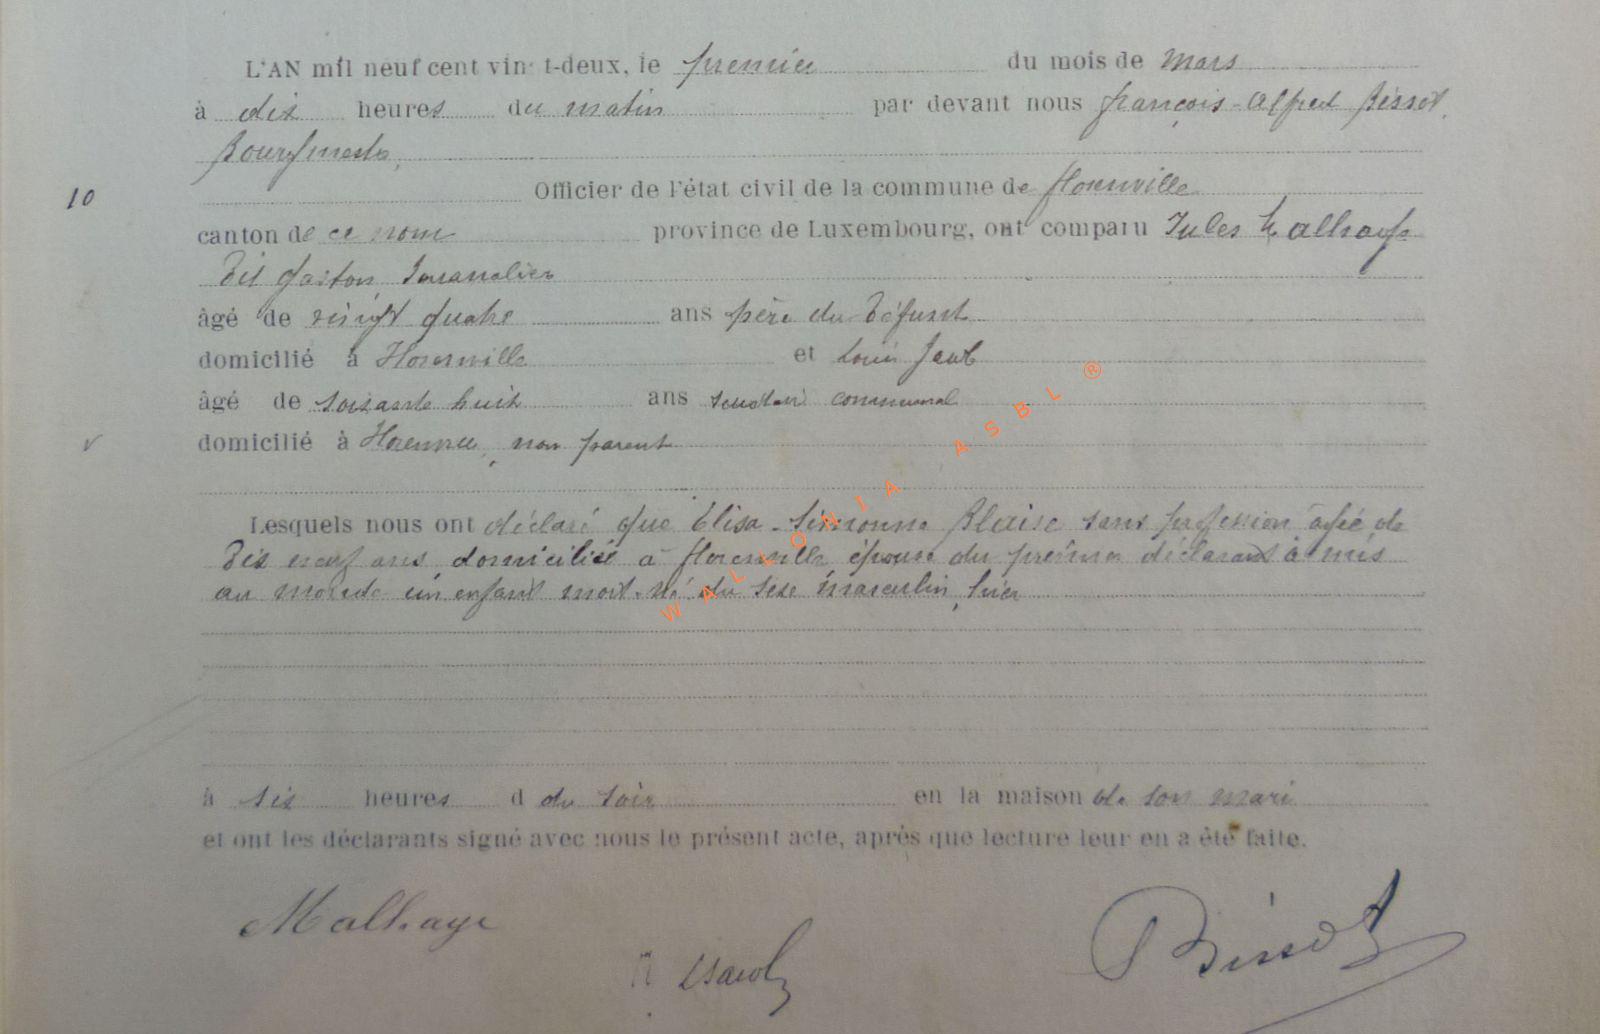 L'AN mil neuf cent vingt-deux, le premier du mois de Mars
à dix heures du matin par devant nous françois-Alfred Bissot,
Bourgmestre,
10
Officier de l'état civil de la commune de florenville
canton de ce nom province de Luxembourg, ont comparu Jules Malhage
Dit Gaston Journalier
âgé de vingt quatre ans père du Défunt
domicilié à Florenville et Louis
âgé de soixante huit ans communal
domicilié à non parent
Lesquels nous ont déclaré que Elisa-Simonne Blaise sans profession âgée de
Dix neuf ans domiciliée à florenville épouse du premier déclarant à mis
au monde un enfant mort-né du sexe masculin, hier
à six heures d du soir en la maison de son mari
et ont les déclarants signé avec nous le présent acte, après que lecture leur en a été faite.
Malhage
Bissot
WALLONIA ASBL ®